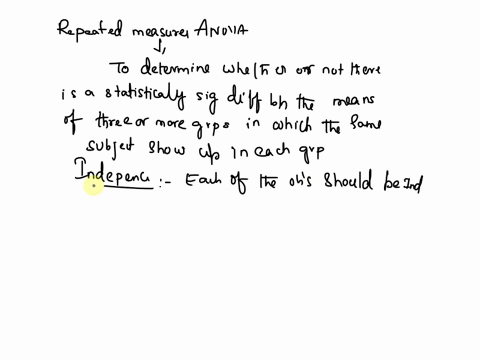 Repeated measures ANOVA
To determine whether or not there
is a statistically sig diff b/n the means
of three or more grps in which the same
subject show up in each grp
Indepenc :- Each of the ob's should be Ind